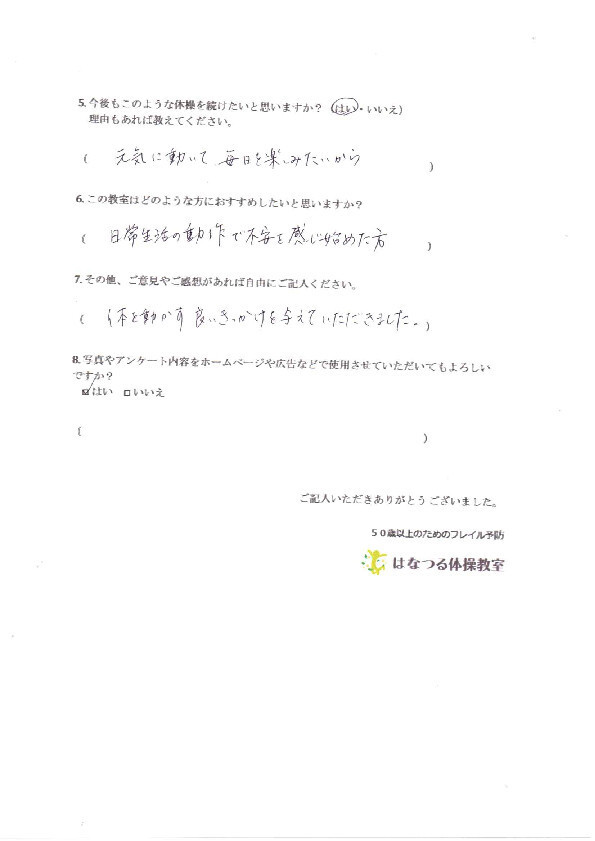 5. 今後もこのような体操を続けたいと思いますか？ (はい・いいえ)
理由もあれば教えてください。
( 元気に動いて 毎日を楽しみたいから )
6. この教室はどのような方におすすめしたいと思いますか？
( 日常生活の動作で不安を感じ始めた方 )
7. その他、ご意見やご感想があれば自由にご記入ください。
( 体を動かす良いきっかけを与えていただきました。)
8. 写真やアンケート内容をホームページや広告などで使用させていただいてもよろしい
ですか？
☑はい □いいえ
( )
ご記入いただきありがとうございました。
５０歳以上のためのフレイル予防
はなつる体操教室